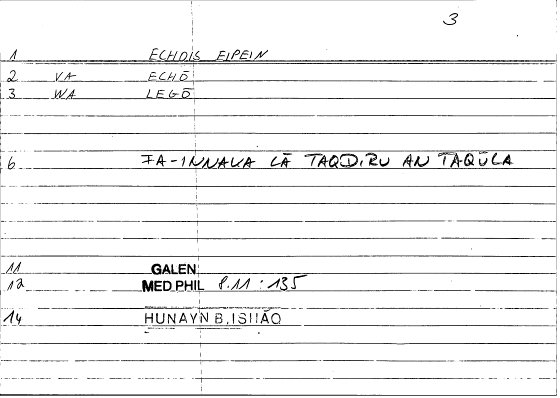 3
1 ECHOIS EIPEIN
2 VA ECHŌ
3 WA LEGŌ
6 FA-INNAKA LĀ TAQDIRU AN TAQŪLA
11 GALEN
12 MED PHIL 8.11 : 135
14 ḤUNAYN B. ISḤĀQ